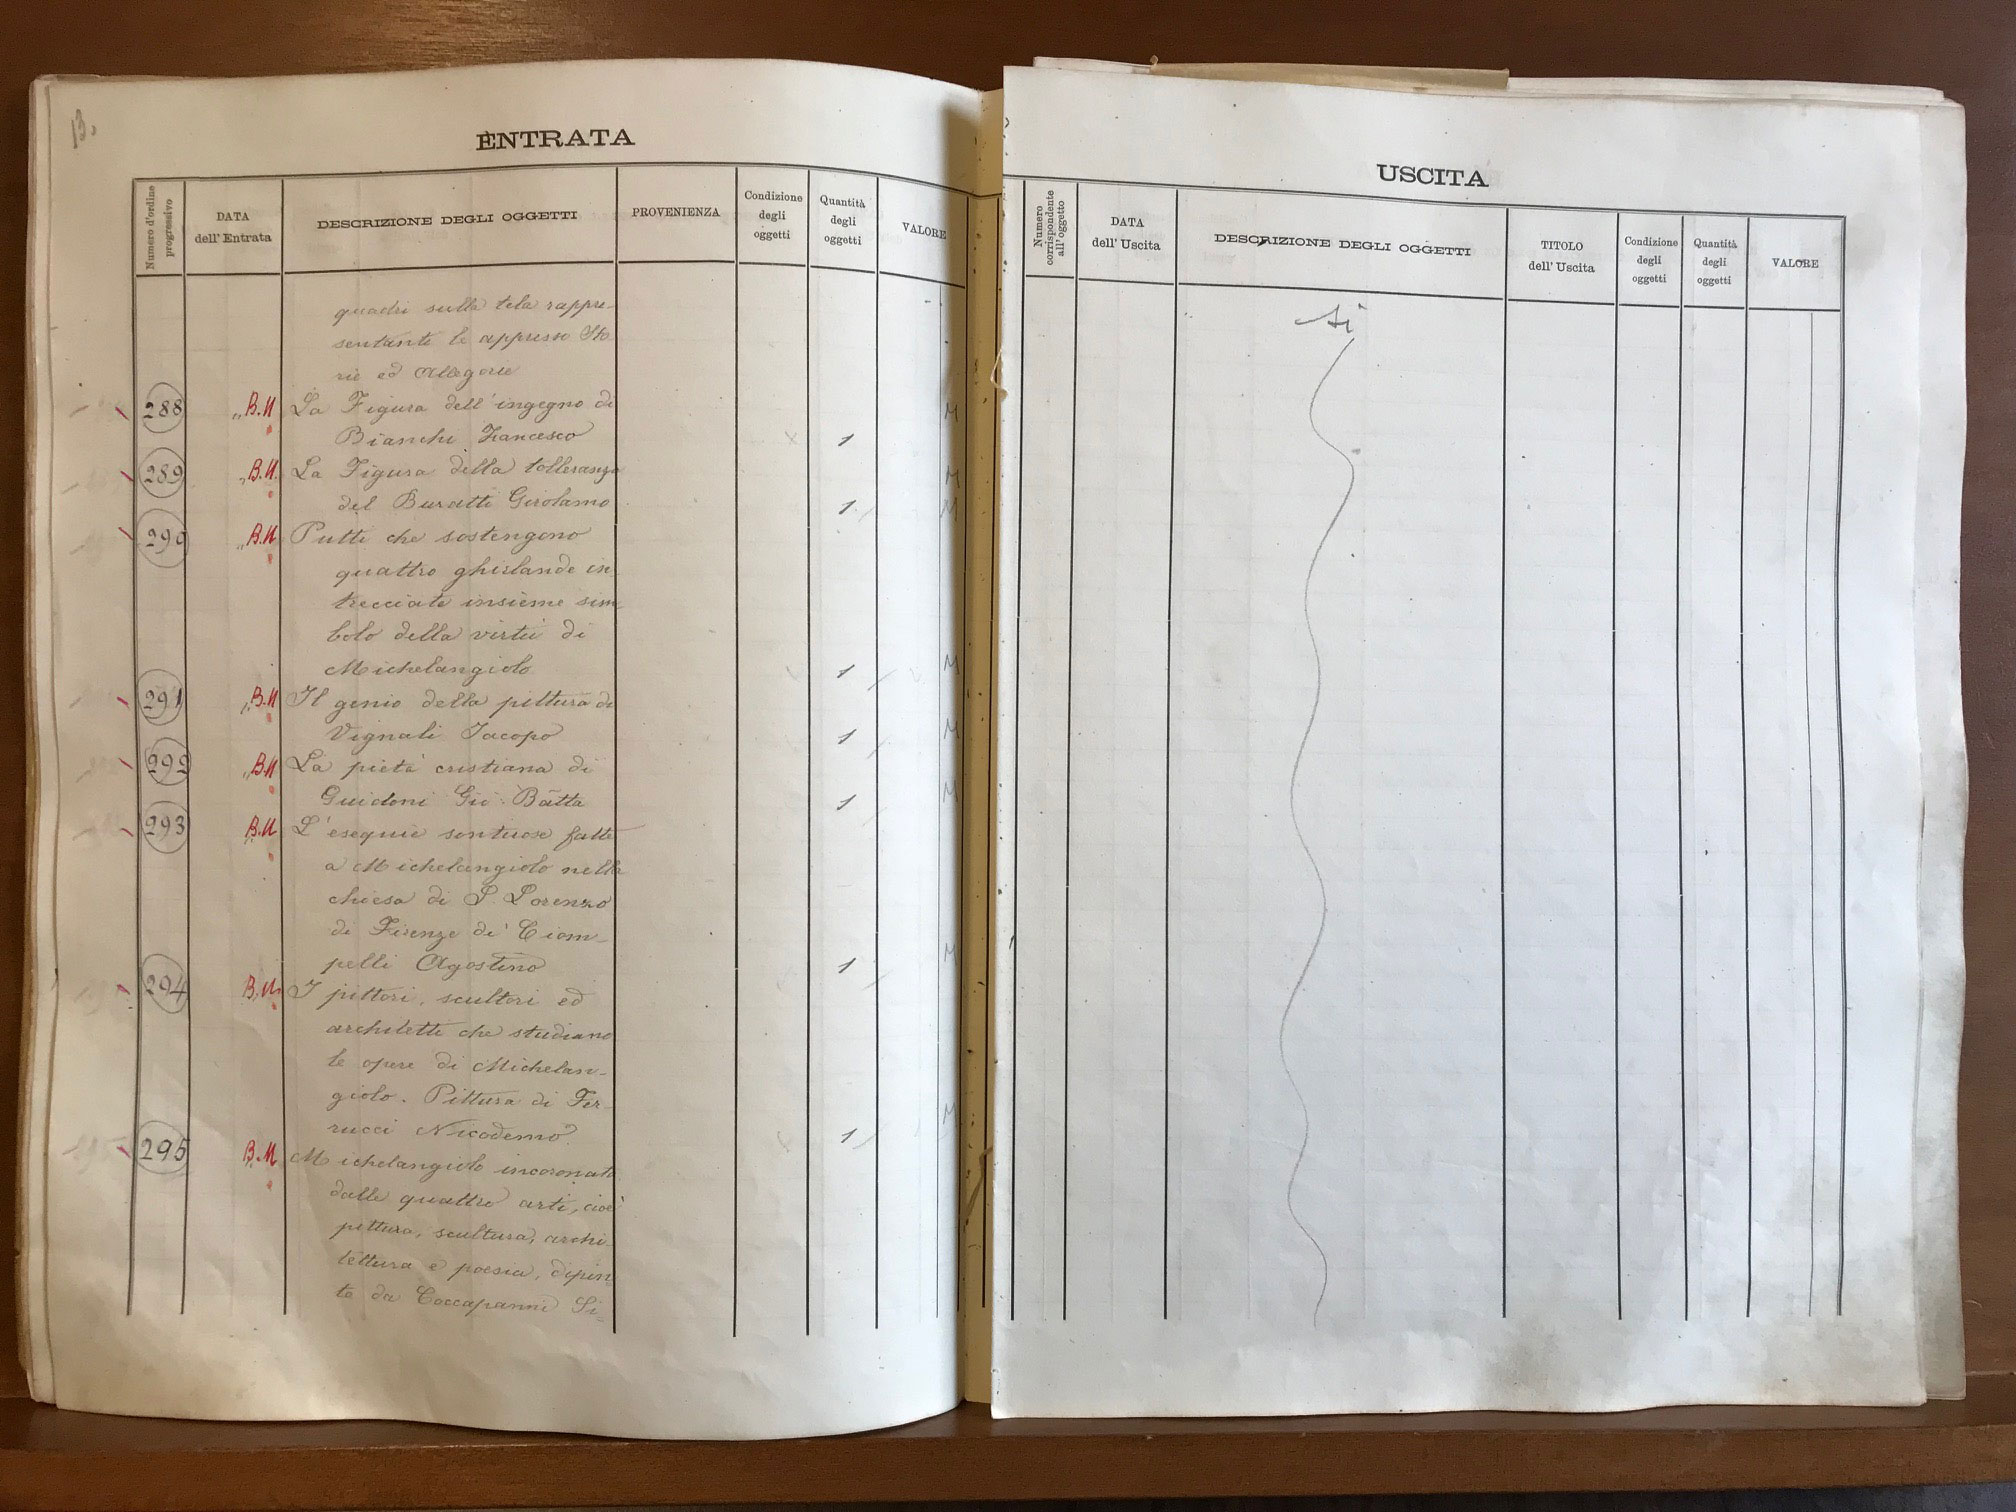 13.
ENTRATA
Numero d'ordine progressivo
DATA dell' Entrata
DESCRIZIONE DEGLI OGGETTI
PROVENIENZA
Condizione degli oggetti
Quantità degli oggetti
VALORE
quadri sulla tela rappre-
sentanti le appresso Sto
rie ed Allegorie
288 " B.M La Figura dell'ingegno di
Bianchi Francesco 1 M
289 " B.M. La Figura della tolleranza
del Buratti Girolamo 1 M
290 " B.M Putti che sostengono
quattro ghirlande in
trecciate insieme sim
bolo della virtù di
Michelangiolo 1 M
291 " B.M Il genio della pittura di
Vignali Jacopo 1 M
292 " B.M La pietà cristiana di
Guidoni Gio. Batta 1 M
293 B.M L'esequie sontuose fatte
a Michelangiolo nella
chiesa di S. Lorenzo
di Firenze di Ciam-
pelli Agostino 1 M
294 B.M. I pittori, scultori ed
architetti che studiano
le opere di Michelan-
giolo. Pittura di Fer
rucci Nicodemo 1 M
295 B.M Michelangiolo incoronato
dalle quattro arti, cioè
pittura, scultura, archi-
tettura e poesia, dipin
to da Coccapanni Si-
USCITA
Numero corrispondente all'oggetto
DATA dell' Uscita
DESCRIZIONE DEGLI OGGETTI
TITOLO dell' Uscita
Condizione degli oggetti
Quantità degli oggetti
VALORE
Si